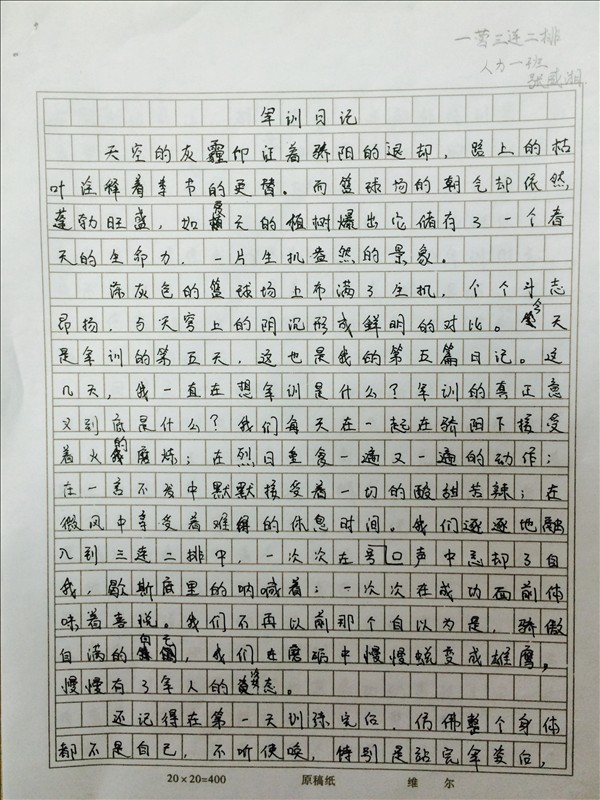 一营三连二排
人力一班
张威湘
军训日记
天空的灰霾印证着骄阳的退却，路上的枯
叶诠释着季节的更替。而篮球场的朝气却依然
蓬勃旺盛，如夏天的植树爆出它储存了一个春
天的生命力，一片生机盎然的景象。
深灰色的篮球场上布满了生机，个个斗志
昂扬，与天穹上的阴沉形成鲜明的对比。今天
是军训的第五天，这也是我的第五篇日记。这
几天，我一直在想军训是什么？军训的真正意
义到底是什么？我们每天在一起在骄阳下接受
着火的磨炼；在烈日重食一遍又一遍的动作；
在一言不发中默默接受着一切的酸甜苦辣；在
微风中享受着难得的休息时间。我们逐逐地融
入到三连二排中，一次次在号口声中忘却了自
我，歇斯底里的呐喊着；一次次在成功面前体
味着喜悦。我们不再以前那个自以为是，骄傲
自满的自己，我们在磨砺中慢慢蜕变成雄鹰。
慢慢有了军人的姿态。
还记得在第一天训练完后，仿佛整个身体
都不是自己，不听使唤，特别是站完军姿后，
20×20=400 原稿纸 维尔